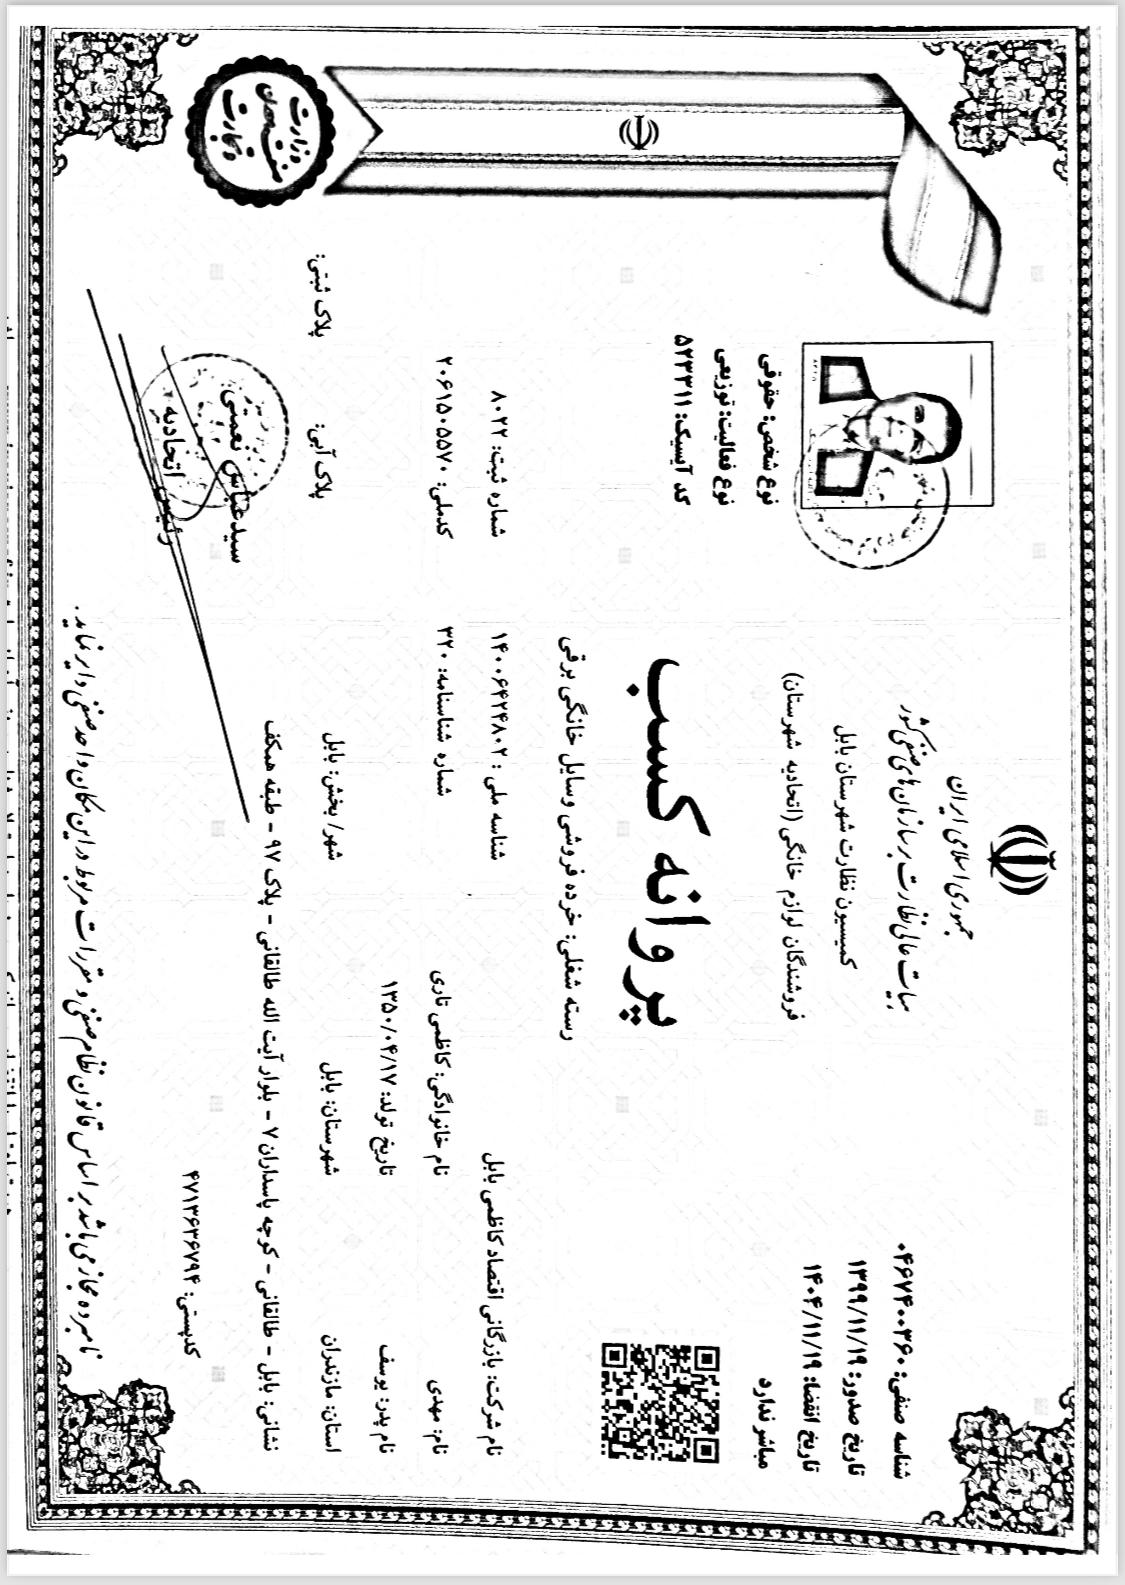 جمهوری اسلامی ایران
هیات عالی نظارت بر سازمان های صنفی کشور
کمیسیون نظارت شهرستان بابل
فروشندگان لوازم خانگی (اتحادیه شهرستان)
پروانه کسب
شناسه صنفی: ۰۴۶۷۴۰۰۳۶۰
تاریخ صدور: ۱۳۹۹/۱۱/۱۹
تاریخ انقضا: ۱۴۰۴/۱۱/۱۹
مباشر ندارد
نوع شخص: حقوقی
نوع فعالیت: توزیعی
کد آیسیک: ۵۲۳۳۱۱
رسته شغلی: خرده فروشی وسایل خانگی برقی
نام شرکت: بازرگانی اقتصاد کاظمی بابل شناسه ملی: ۱۴۰۰۶۴۲۴۸۰۲ شماره ثبت: ۸۰۲۲
نام: مهدی نام خانوادگی: کاظمی تاری شماره شناسنامه: ۳۲۰ کدملی: ۲۰۶۱۵۰۵۵۷۰
نام پدر: یوسف تاریخ تولد: ۱۳۵۰/۰۴/۱۷
استان: مازندران شهرستان: بابل شهر/ بخش: بابل پلاک آبی: پلاک ثبتی:
نشانی: بابل - طالقانی - کوچه پاسداران ۷ - بلوار آیت الله طالقانی - پلاک ۹۷ - طبقه همکف
کدپستی: ۴۷۱۳۶۳۶۷۹۴
سیدعباس نعمتی
رئیس اتحادیه
نامبرده مجاز می باشد بر اساس قانون نظام صنفی و مقررات مربوط در این مکان واحد صنفی دایر نماید.
وزارت
صنعت معدن
و تجارت